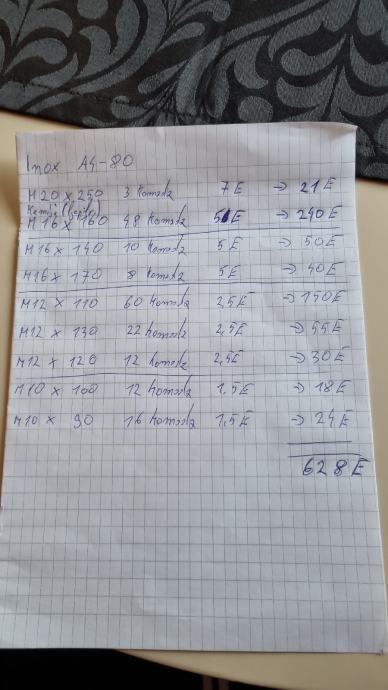 Inox A4-80
M20 x 250 3 komada 7 E → 21 E
M16 x 160 48 komada 5 E → 240 E
M16 x 140 10 komada 5 E → 50 E
M16 x 170 8 komada 5 E → 40 E
M12 x 110 60 komada 2,5 E → 150 E
M12 x 130 22 komada 2,5 E → 55 E
M12 x 120 12 komada 2,5 E → 30 E
M10 x 100 12 komada 1,5 E → 18 E
M10 x 90 16 komada 1,5 E → 24 E
628 E